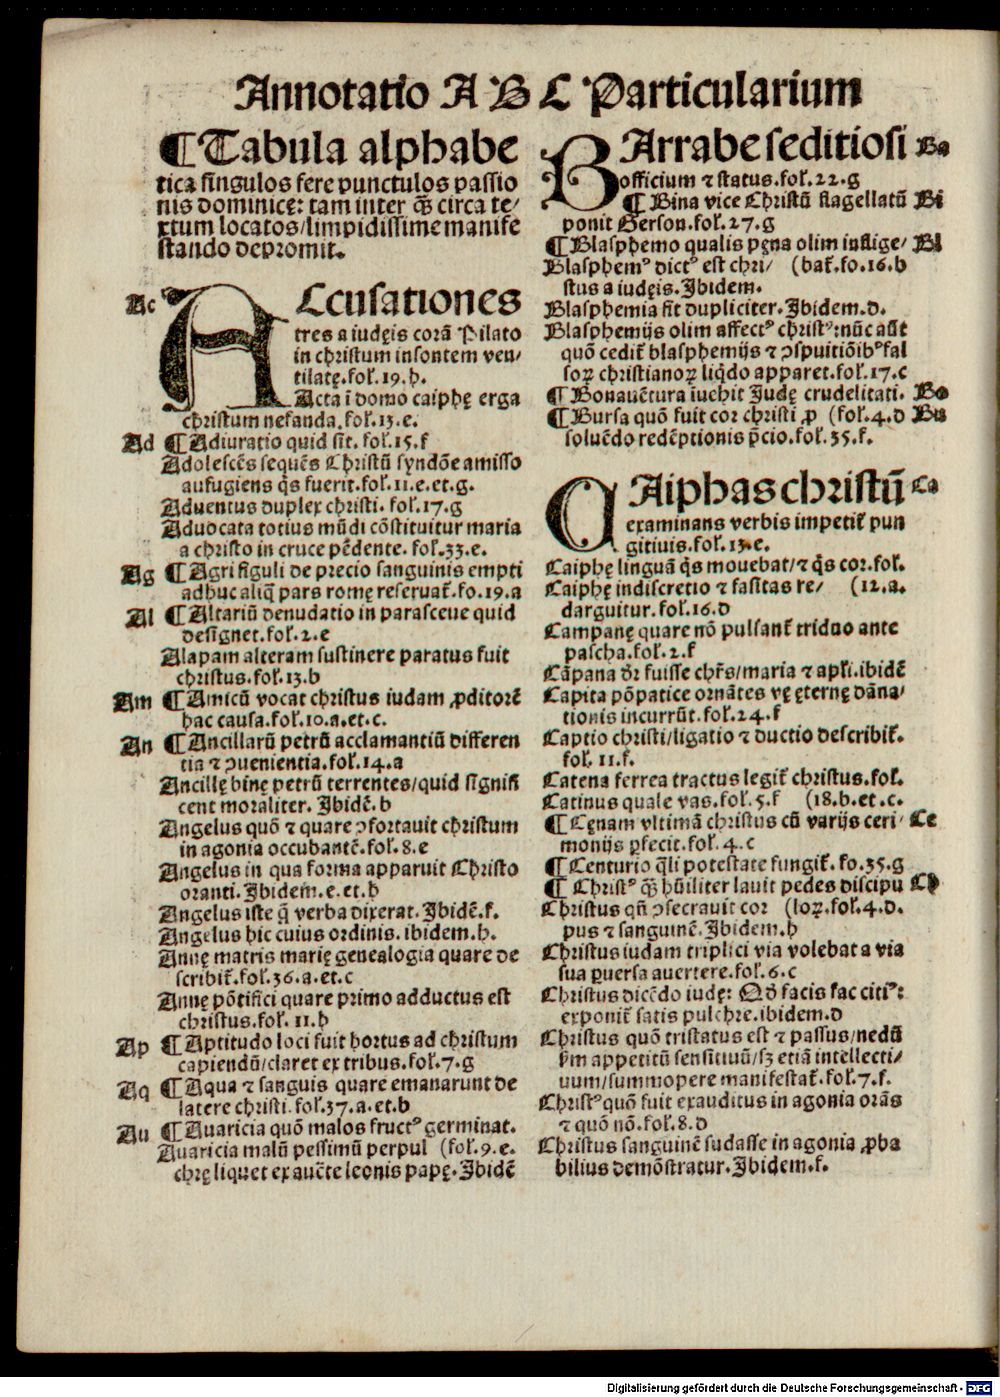 Annotatio A B C Particularium
¶ Tabula alphabe
tica singulos fere punctulos passio
nis dominicę: tam inter q̃ꝫ circa te/
xtum locatos/limpidissime manife
stando depromit.
Ac ACcusationes
tres a iudęis corã Pilato
in christum insontem ven/
tilatę.fol.19.h.
Acta ĩ domo caiphę erga
christum nefanda.fol.13.e.
Ad ¶ Adiuratio quid sit.fol.15.f
Adolescẽs sequẽs Christũ syndõe amisso
aufugiens q̃s fuerit.fol.11.e.et.g.
Aduentus duplex christi.fol.17.g
Aduocata totius mũdi cõstituitur maria
a christo in cruce pẽdente.fol.33.e.
Ag ¶ Agri figuli de precio sanguinis empti
adhuc aliq̃ pars romę reseruat̃.fo.19.a
Al ¶ Altariũ denudatio in parasceue quid
designet.fol.2.e
Alapam alteram sustinere paratus fuit
christus.fol.13.b
Am ¶ Amicũ vocat christus iudam ꝓditorẽ
hac causa.fol.10.a.et.c.
An ¶ Ancillarũ petrũ acclamantiũ differen
tia ⁊ ꝯuenientia.fol.14.a
Ancillę binę petrũ terrentes/quid signifi
cent moraliter. Ibidẽ.b
Angelus quõ ⁊ quare ꝯfortauit christum
in agonia occubantẽ.fol.8.e
Angelus in qua forma apparuit Christo
oranti. Ibidem.e.et.h
Angelus iste q̃ verba dixerat. Ibidẽ.f.
Angelus hic cuius ordinis. ibidem.h.
Annę matris marię genealogia quare de
scribit̃.fol.36.a.et.c
Annę põtifici quare primo adductus est
christus.fol.11.h
Ap ¶ Aptitudo loci fuit hortus ad christum
capiendũ/claret ex tribus.fol.7.g
Aq ¶ Aqua ⁊ sanguis quare emanarunt de
latere christi.fol.37.a.et.b
Au ¶ Auaricia quõ malos fructꝰ germinat.
Auaricia malũ pessimũ perpul (fol.9.e.
chrę liquet ex auẽte leonis papę. Ibidẽ
BArrabe seditiosi Ba
officium ⁊ status.fol.22.g
¶ Bina vice Christũ flagellatũ Bi
ponit Gerson.fol.27.g
¶ Blasphemo qualis pęna olim inflige/ Bl
Blasphemꝰ dictꝰ est chri/ (bat̃.fo.16.b
stus a iudęis. Ibidem.
Blasphemia fit dupliciter. Ibidem.d.
Blasphemijs olim affectꝰ christꝰ:nũc aũt
quõ cedit̃ blasphemijs ⁊ ꝯspuitiõibꝰ fal
soꝝ christianoꝝ liq̃do apparet.fol.17.c
¶ Bonauẽtura iuehit Iudę crudelitati. Bo
¶ Bursa quõ fuit cor christi ꝓ (fol.4.d Bu
soluẽdo redẽptionis p̃cio.fol.35.f.
CAiphas christũ Ca
examinans verbis impetit̃ pun
gitiuis.fol.13.e.
Caiphę linguã q̃s mouebat/⁊ q̃s cor.fol.
Caiphę indiscretio ⁊ falsitas re/ (12.a.
darguitur.fol.16.d
Campanę quare nõ pulsant̃ triduo ante
pascha.fol.2.f
Cãpana dr̃ fuisse chr̃s/maria ⁊ apl̃i.ibidẽ
Capita põpatice ornãtes vę ęternę dãna/
tionis incurrũt.fol.24.f
Captio christi/ligatio ⁊ ductio describit̃.
fol.11.f.
Catena ferrea tractus legit̃ christus.fol.
Catinus quale vas.fol.5.f (18.b.et.c.
¶ Cęnam vltimã christus cũ varijs ceri/ Ce
monijs ꝑfecit.fol.4.c
¶ Centurio q̃li potestate fungit̃.fo.35.g
¶ Christꝰ q̃ꝫ hũiliter lauit pedes discipu Ch
Christus qñ ꝯsecrauit cor (loꝝ.fol.4.d.
pus ⁊ sanguinẽ. Ibidem.h
Christus iudam triplici via volebat a via
sua ꝑuersa auertere.fol.6.c
Christus dicẽdo iudę: Qd̃ facis fac citiꝰ:
exponit̃ satis pulchre.ibidem.d
Christus quõ tristatus est ⁊ passus/nedũ
ẜm appetitũ sensitiuũ/sꝫ etiã intellecti/
uum/summopere manifestat̃.fol.7.f.
Christꝰ quõ fuit exauditus in agonia orãs
⁊ quõ nõ.fol.8.d
Christus sanguinẽ sudasse in agonia ꝓba
bilius demõstratur. Ibidem.f.
Digitalisierung gefördert durch die Deutsche Forschungsgemeinschaft - DFG